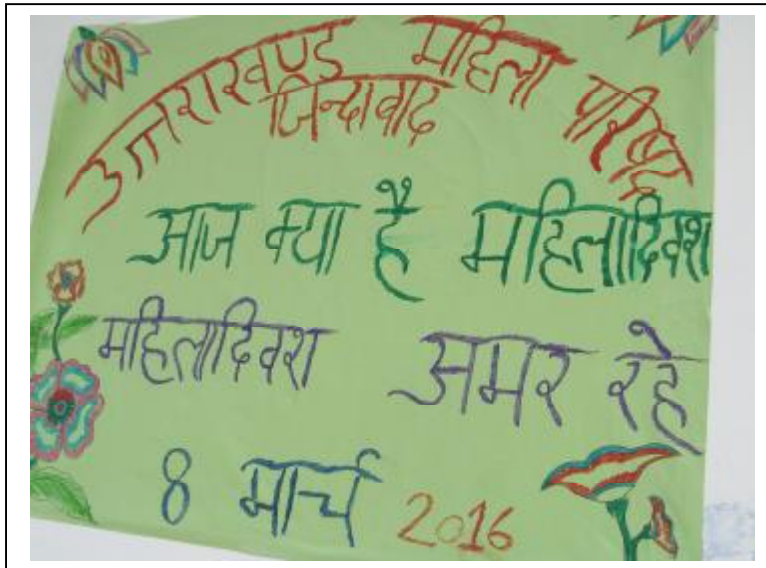 उत्तराखण्ड महिला परिषद
जिन्दावाद
आज क्या है महिलादिवश
महिलादिवश अमर रहे
8 मार्च 2016